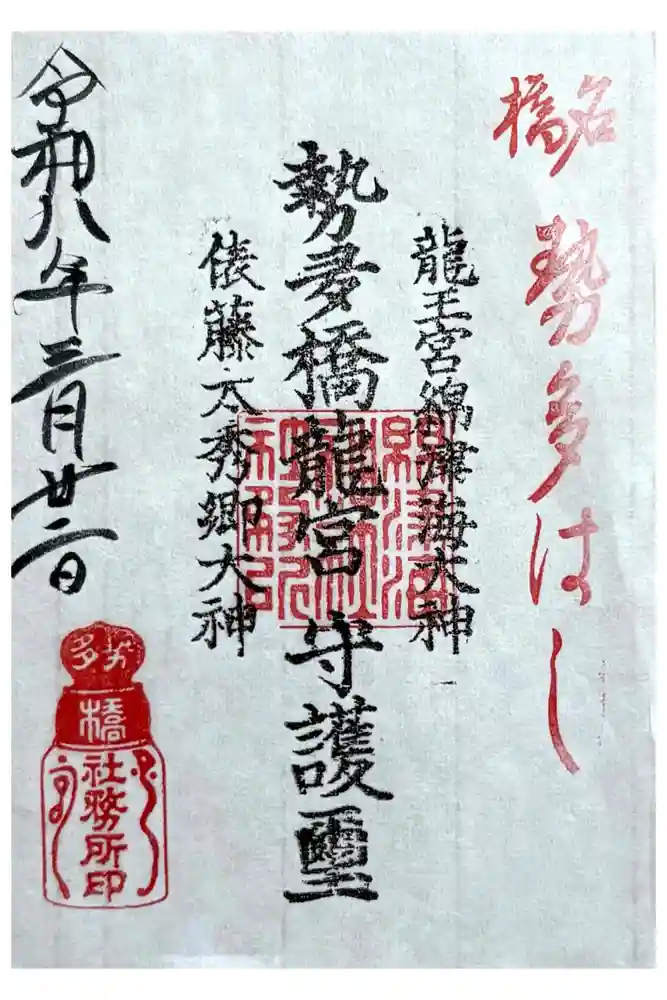 名橋
勢多はし
龍王宮綿津海大神
勢多橋龍宮守護璽
俵藤太秀郷大神
令和八年三月廿二日
勢多
橋
社務所印